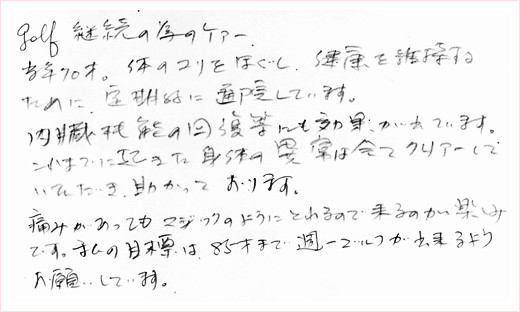 golf 継続の為のケアー
当年70才。体のコリをほぐし、健康を維持する
ために、定期的に通院しています。
内臓機能の回復等にも効果が出ています。
これまでに起きた身体の異常は全てクリアーして
いただき、助かっております。
痛みがあってもマジックのようにとれるので来るのが楽しみ
です。私の目標は、85才まで週一ゴルフが出来るよう
お願いしています。